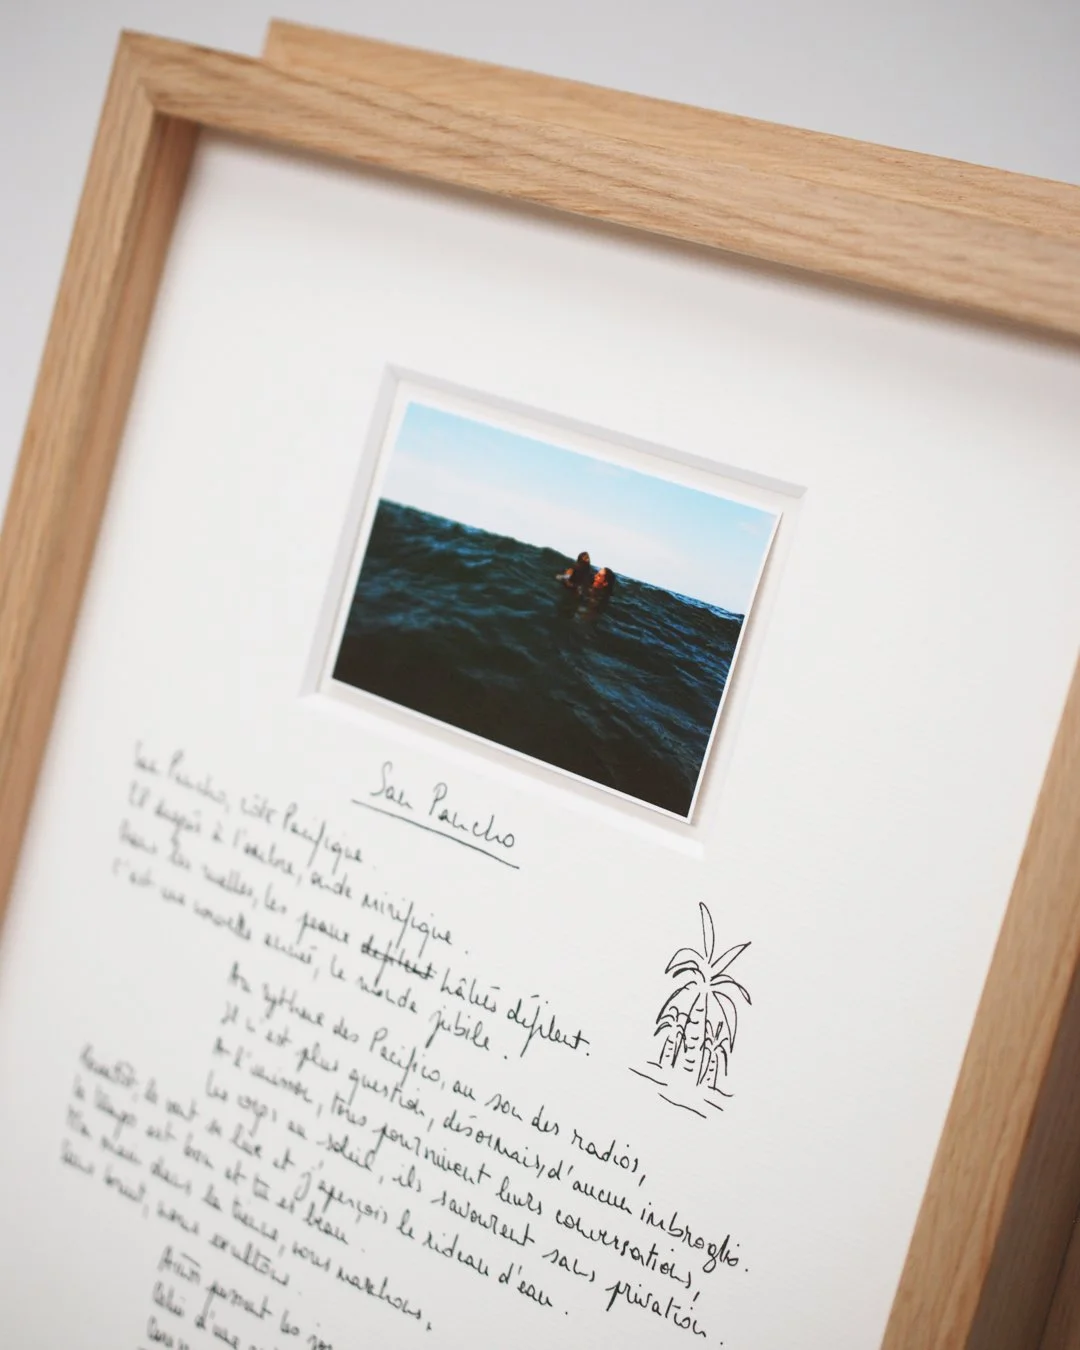 San Pancho
San Pancho, côte Pacifique.
25 degrés à l'ombre, onde mirifique.
Dans les ruelles, les peaux défilent hâlées défilent.
C'est une nouvelle année, le monde jubile.
Au rythme des Pacifico, au son des radios,
Il n'est plus question, désormais, d'aucun imbroglio.
A l'unisson, tous poursuivent leurs conversations,
Les corps au soleil, ils savourent sans privation.
Bientôt, le vent se lève et j'aperçois le rideau d'eau.
Le temps est bon et tu es beau.
Ma main dans la tienne, nous marchons,
Sans bruit, nous exultons.
Ainsi passent les
d'une